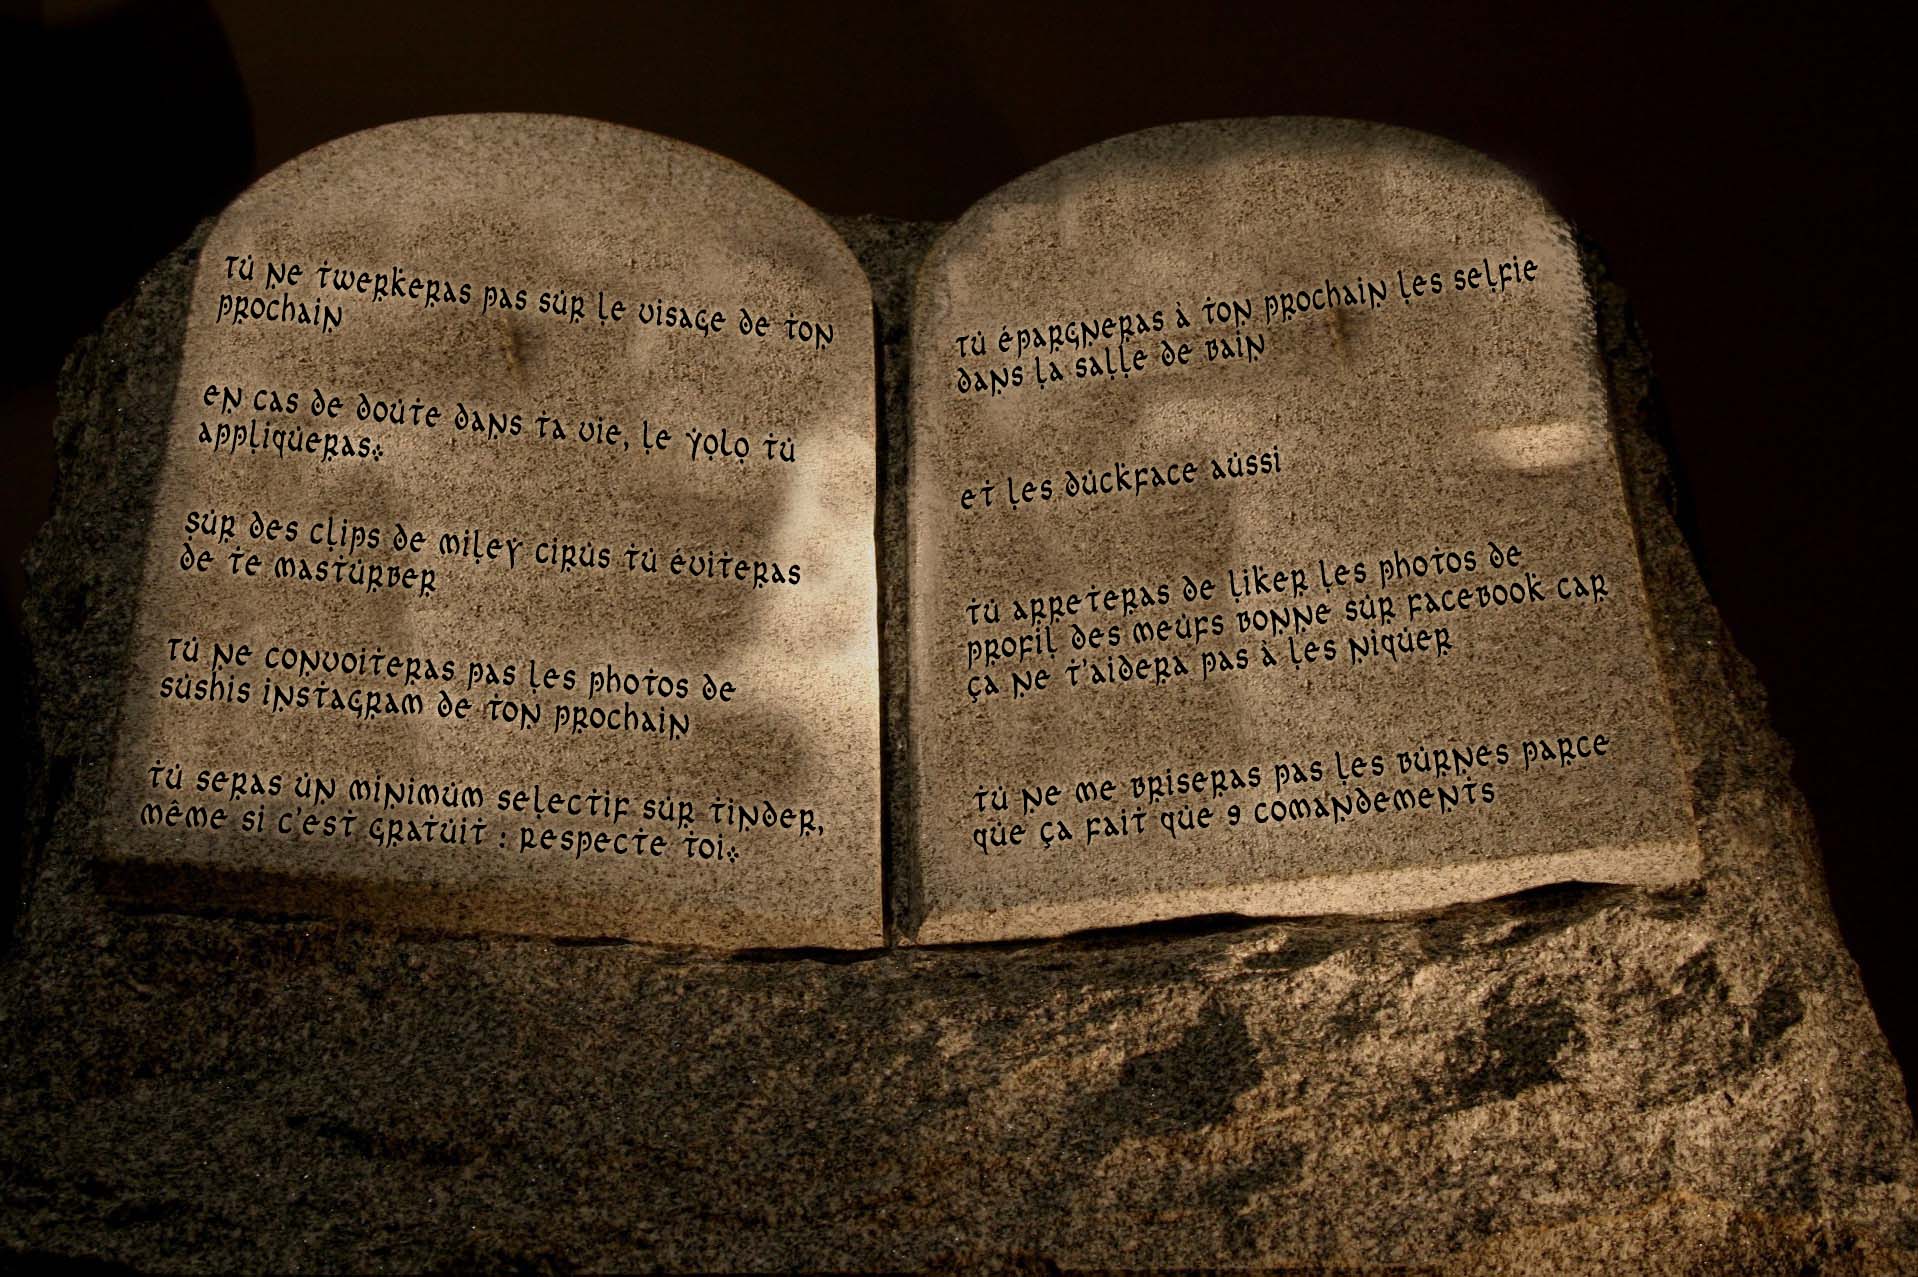 tu ne twerkeras pas sur le visage de ton
prochain
en cas de doute dans ta vie, le yolo tu
appliqueras.
sur des clips de miley cirus tu éviteras
de te masturber
tu ne convoiteras pas les photos de
sushis instagram de ton prochain
tu seras un minimum selectif sur tinder,
même si c'est gratuit : respecte toi.
tu épargneras à ton prochain les selfie
dans la salle de bain
et les duckface aussi
tu arreteras de liker les photos de
profil des meufs bonne sur facebook car
ça ne t'aidera pas à les niquer
tu ne me briseras pas les burnes parce
que ça fait que 9 comandements